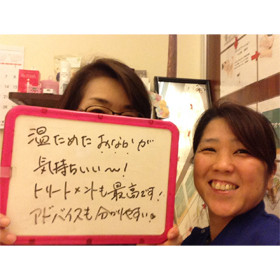 温ためた おなかが
気持ちいい～!
トリートメントも最高です!
アドバイスも分かりやすい。